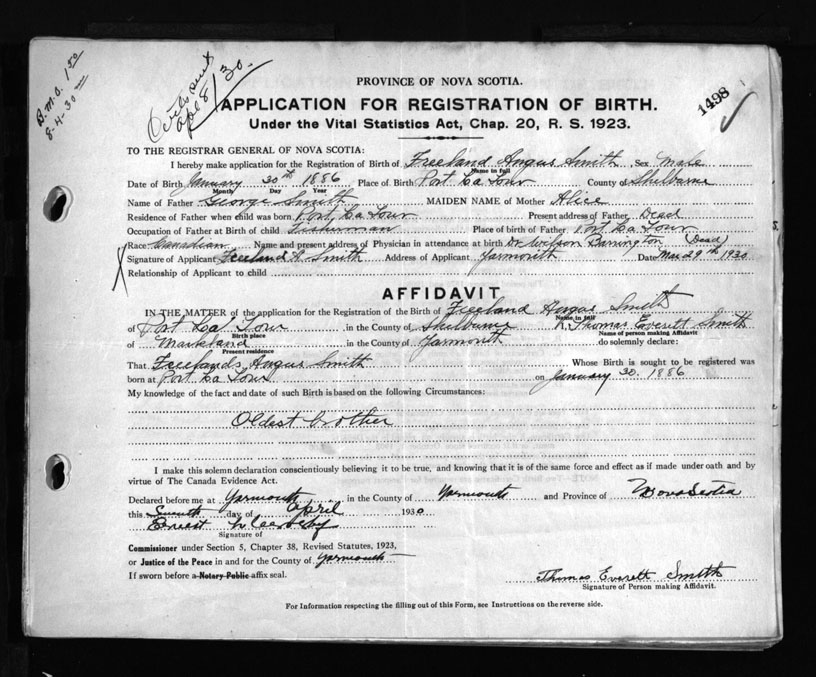 B.M.O. 1.50
8-4-30
Certs sent
Apl 8/30.
1498
PROVINCE OF NOVA SCOTIA.
APPLICATION FOR REGISTRATION OF BIRTH.
Under the Vital Statistics Act, Chap. 20, R. S. 1923.
TO THE REGISTRAR GENERAL OF NOVA SCOTIA:
I hereby make application for the Registration of Birth of Freeland Angus Smith Sex Male
Name in full
Date of Birth January 30th 1886 Place of Birth Port La Tour County of Shelburne
Month Day Year
Name of Father George Smith MAIDEN NAME of Mother Alice
Residence of Father when child was born Port La Tour Present address of Father Dead
Occupation of Father at Birth of child Fisherman Place of birth of Father Port La Tour
Race Canadian Name and present address of Physician in attendance at birth Dr Wilson Barrington (Dead)
Signature of Applicant Freeland A Smith Address of Applicant Yarmouth Date Mar 29th 1930
Relationship of Applicant to child
AFFIDAVIT
IN THE MATTER of the application for Registration of the Birth of Freeland Angus Smith
Name in full
of Port La Tour in the County of Shelburne I, Thomas Everett Smith
Birth place Name of person making Affidavit
of Markland in the County of Yarmouth do solemnly declare:
Present residence
That Freeland Angus Smith Whose Birth is sought to be registered was
born at Port La Tour on January 30. 1886
My knowledge of the fact and date of such Birth is based on the following Circumstances:
Oldest brother
I make this solemn declaration conscientiously believing it to be true, and knowing that it is of the same force and effect as if made under oath and by
virtue of The Canada Evidence Act.
Declared before me at Yarmouth in the County of Yarmouth and Province of Nova Scotia
this day of April 1930
Ernest
Signature of
Commissioner under Section 5, Chapter 38, Revised Statutes, 1923,
or Justice of the Peace in and for the County of Yarmouth
If sworn before a Notary Public affix seal.
Thomas Everett Smith
Signature of Person making Affidavit.
For Information respecting the filling out of this Form, see Instructions on the reverse side.